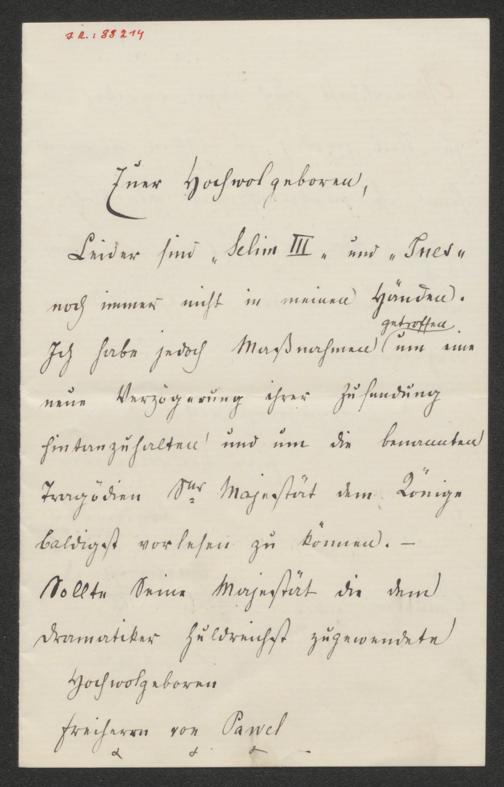 J.R.: 88214
Euer Hochwolgeboren,
Leider sind „Selim III„ und „Ines„
noch immer nicht in meinen Händen.
getroffen
Ich habe jedoch Maßnahmen um eine
neue Verzögerung ihrer Zusendung
hintanzuhalten und um die benannten
Tragödien Snr Majestät dem Könige
baldigst vorlesen zu können. —
Sollte Seine Majestät die dem
Dramatiker huldreichst zugewendete
Hochwolgeboren
Freiherrn von Pawel